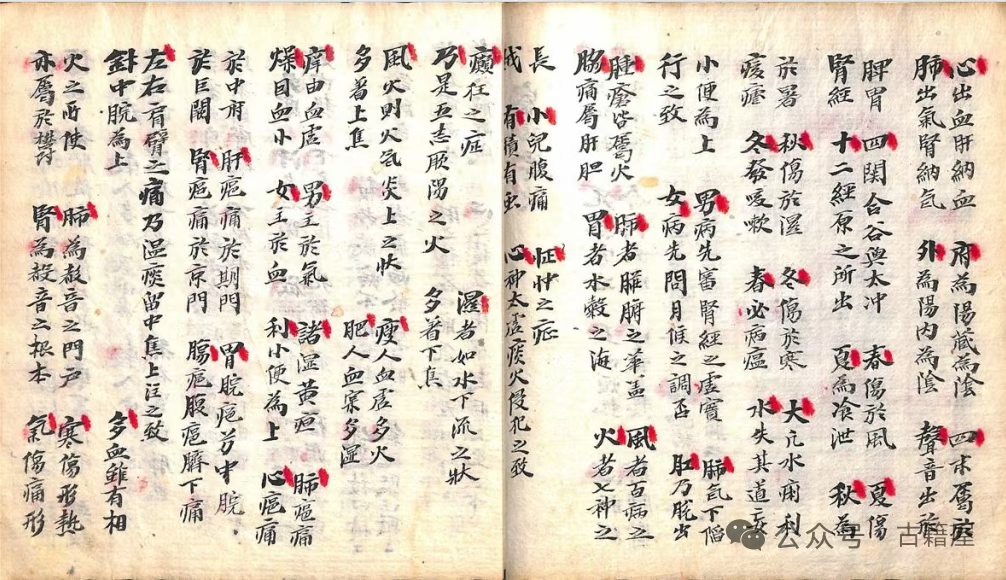 心出血肝納血 府為陽藏為陰 四末屬於
肺出氣腎納氣 外為陽內為陰 聲音出於
脾胃 四関合谷與太冲 春傷於風 夏傷
腎經 十二經原之所出 夏為飧泄 秋為
於暑 秋傷於濕 冬傷於寒 大凡水痢利
痎瘧 冬發咳嗽 春必病瘟 水失其道妄
小便為上 男病先審腎經之虛實 肺气下陷
行之致 女病先問月候之調否 肛乃脫出
腫瘡皆屬火 肺者臟腑之華盖 風者百病之
脇痛屬肝胆 胃者水穀之海 火者七神之
長 小兒腹痛 怔忡之症
有積有虫 心神太虛痰火侵犯之致
癲狂之症 濕者如水下流之狀
乃是五志厥陽之火 多著下焦
風火則火气炎上之狀 瘦人血虛多火
多著上焦 肥人血寔多湿
痒由血虛 男主於氣 諸湿黃疸 肺疝痛
燥因血小 女主於血 利小便為上 心疝痛
於中府 肝疝痛於期門 胃脘疝於中脘
於巨闕 腎疝痛於京門 腸疝腹疝臍下痛
左右肩臂之痛乃湿痰留中焦上注之致
針中脘為上 多血雖有相
火之所使 肺為聲音之門户 寒傷形熱
亦屬於欝 腎為聲音之根本 氣傷痛形
公众号 古籍屋